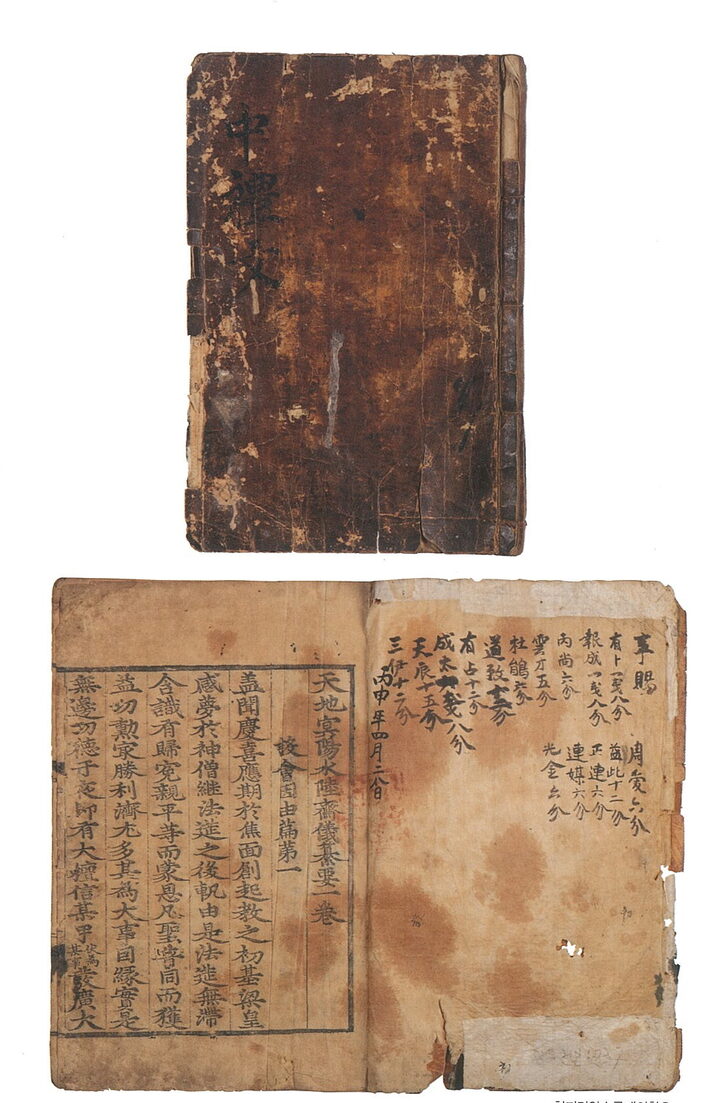 中禮文
周愛六分
有卜一戔八分
報成一戔八分 正連六分
丙尚六分 連媒六分
雲才五分 光金六分
道教
有占十二分
成太 八分
天辰十五分
三伊十二分
丙申年四月
天地冥陽水陸齋儀纂要一卷
設會因由篇第一
盖聞慶喜應期於焦面創起教之初基梁皇
感夢於神僧繼法筵之後軌由是法筵無滯
含識有歸寃親平等而蒙恩凡聖普同而獲
益功勲冣勝利濟尤多其為大事因緣實是
無邊功德于夜即有大檀信某甲伏為某事發廣大